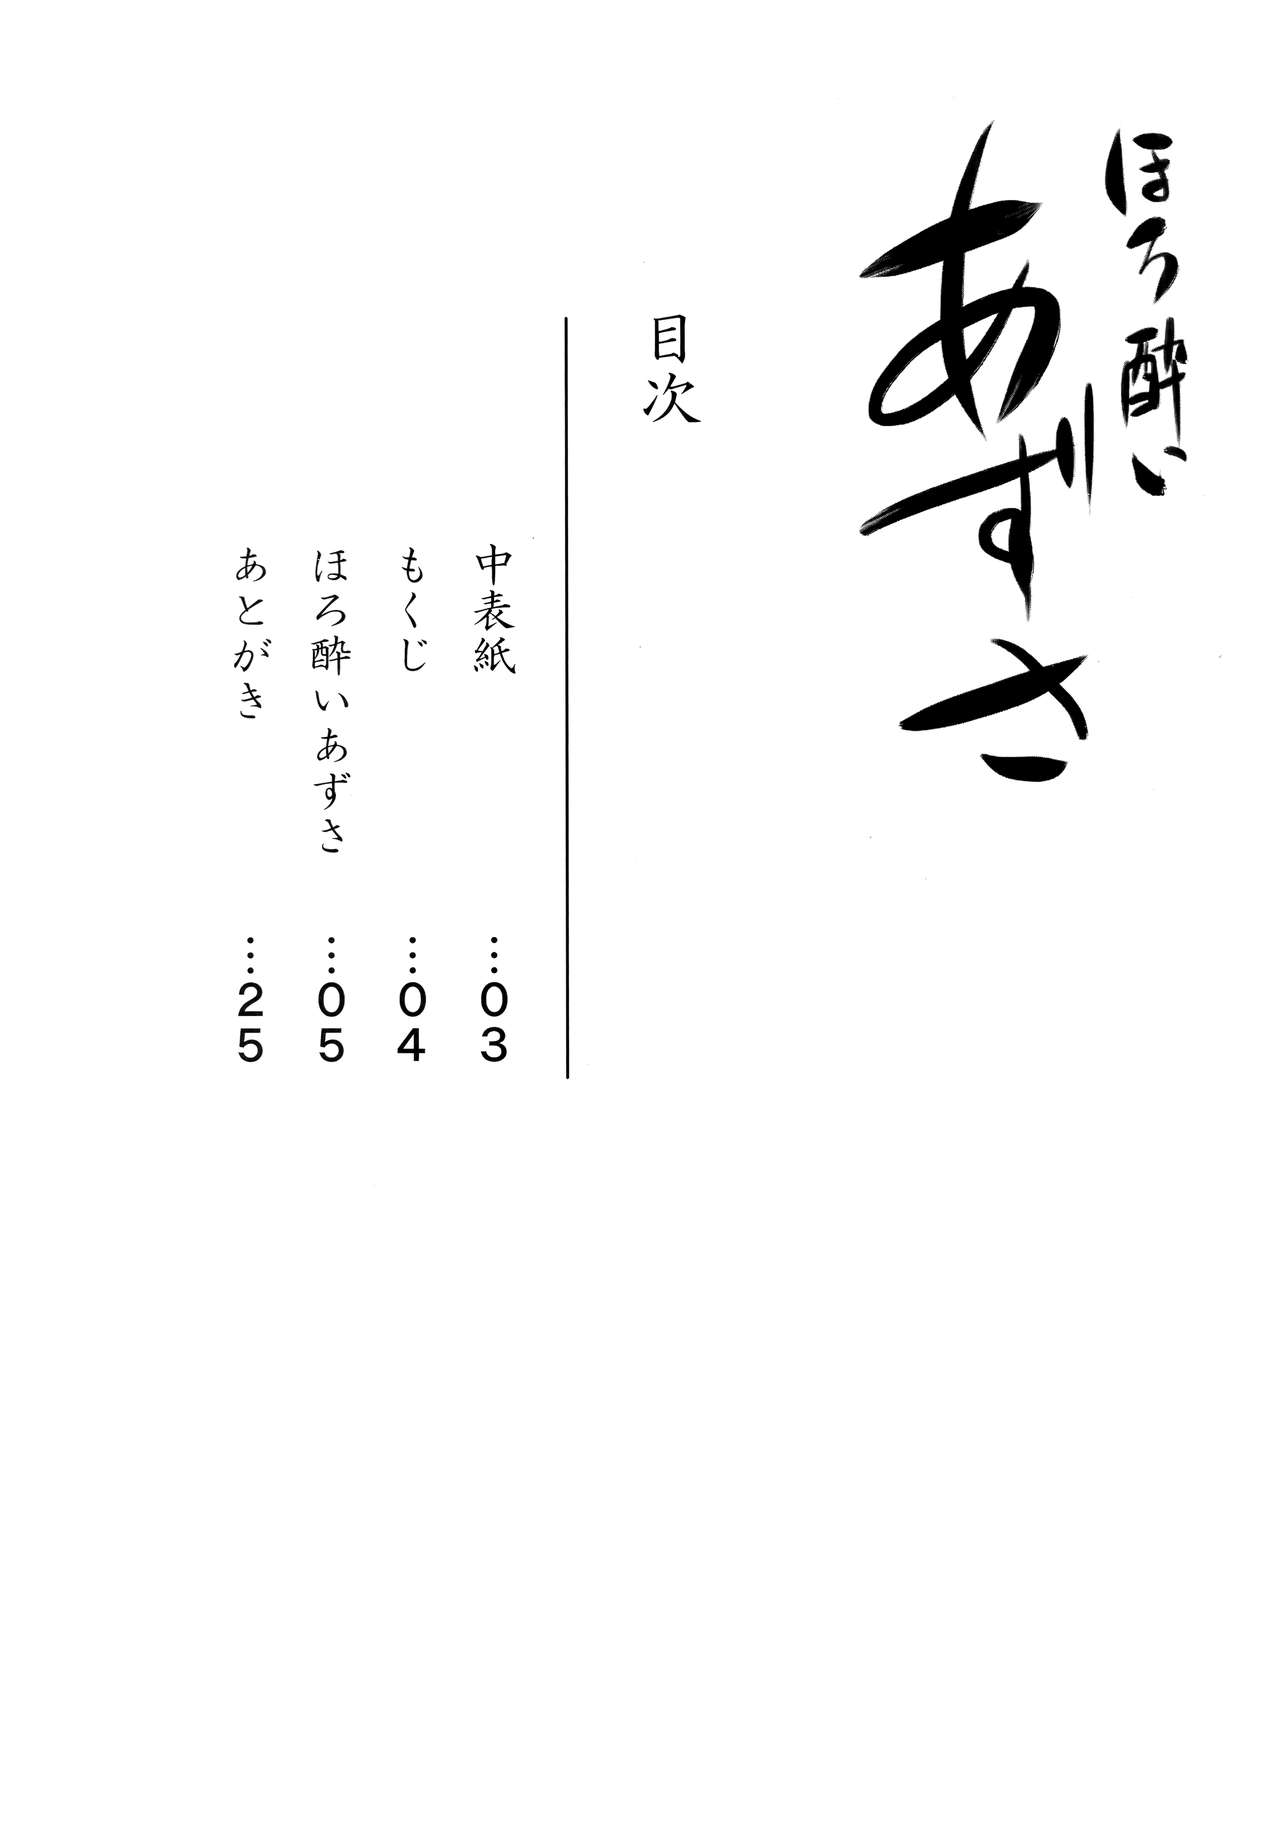 ほろ酔い
あずさ
目次
中表紙…03
もくじ…04
ほろ酔いあずさ…05
あとがき…25